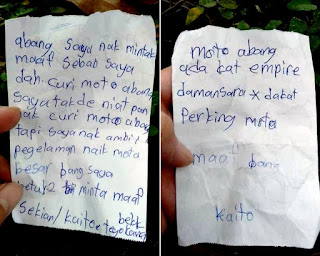 abang saya nak mintak
maaf sebab saya
dah curi moto abang
saya tak de niat pon
nak curi moto abang
tapi saya nak ambil
pegelaman naik mota
besar bang saya
betul2 minta maaf
sekian/kaito
moto abang
ada kat empire
damansara x dakat
perking moto
maaf bang
kaito